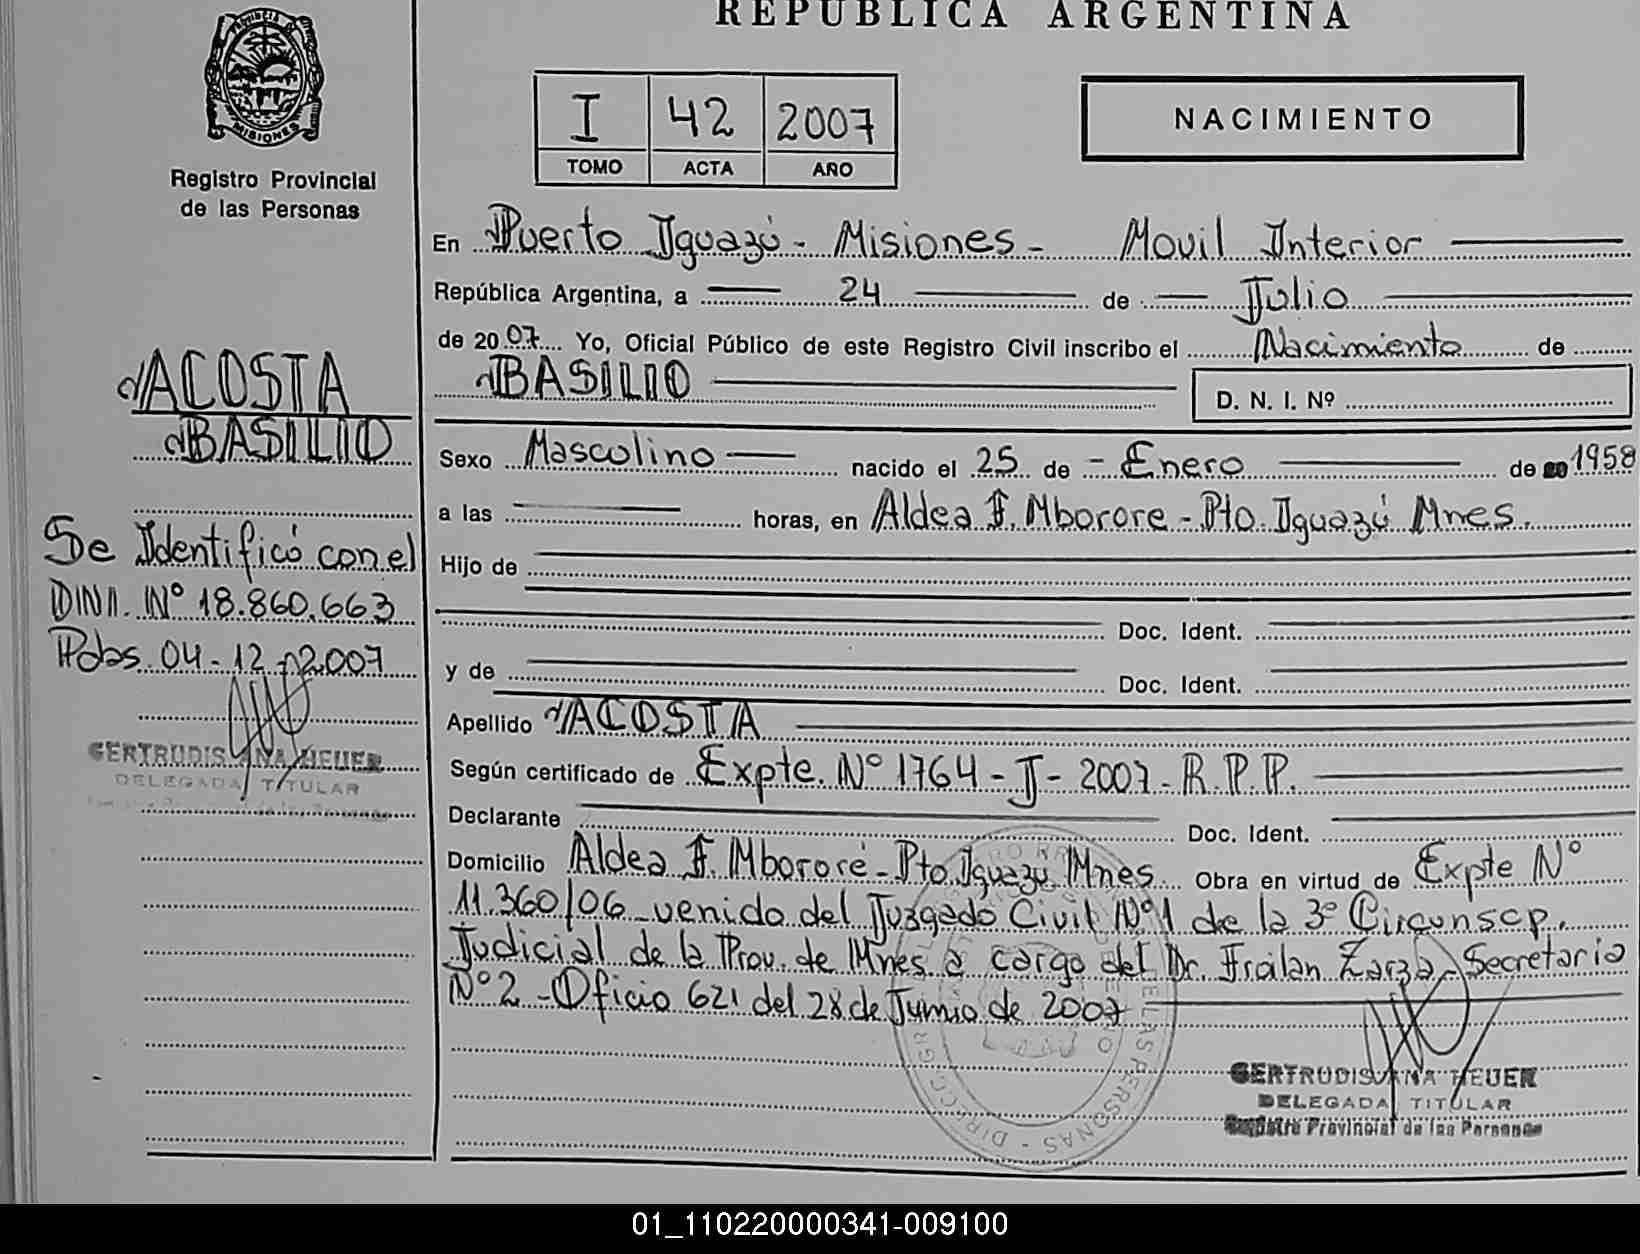 REPUBLICA ARGENTINA
MISIONES
Registro Provincial
de las Personas
I 42 2007
TOMO ACTA AÑO
NACIMIENTO
En Puerto Iguazú - Misiones - Movil Interior
República Argentina, a 24 de Julio
de 2007 Yo, Oficial Público de este Registro Civil inscribo el Nacimiento de
BASILIO
D. N. I. Nº
ACOSTA
BASILIO
Se Identificó con el
DNI. Nº 18.860.663
Pdas 04-12-2007
GERTRUDIS ANA HEUER
DELEGADA TITULAR
Sexo Masculino nacido el 25 de - Enero de 1958
a las horas, en Aldea F. Mborore - Pto. Iguazú Mnes.
Hijo de
Doc. Ident.
y de
Doc. Ident.
Apellido ACOSTA
Según certificado de Expte. Nº 1764 - J - 2007 - R.P.P.
Declarante Doc. Ident.
Domicilio Aldea F. Mbororé - Pto Iguazu Mnes Obra en virtud de Expte Nº
11.360/06 venido del Juzgado Civil Nº1 de la 3º Circunscp.
Judicial de la Prov. de Mnes a cargo del Dr. Froilan Zarza - Secretaria
Nº 2 - Oficio 621 del 28 de Junio de 2007
GERTRUDIS ANA HEUER
DELEGADA TITULAR
Registro Provincial de las Personas
01_110220000341-009100